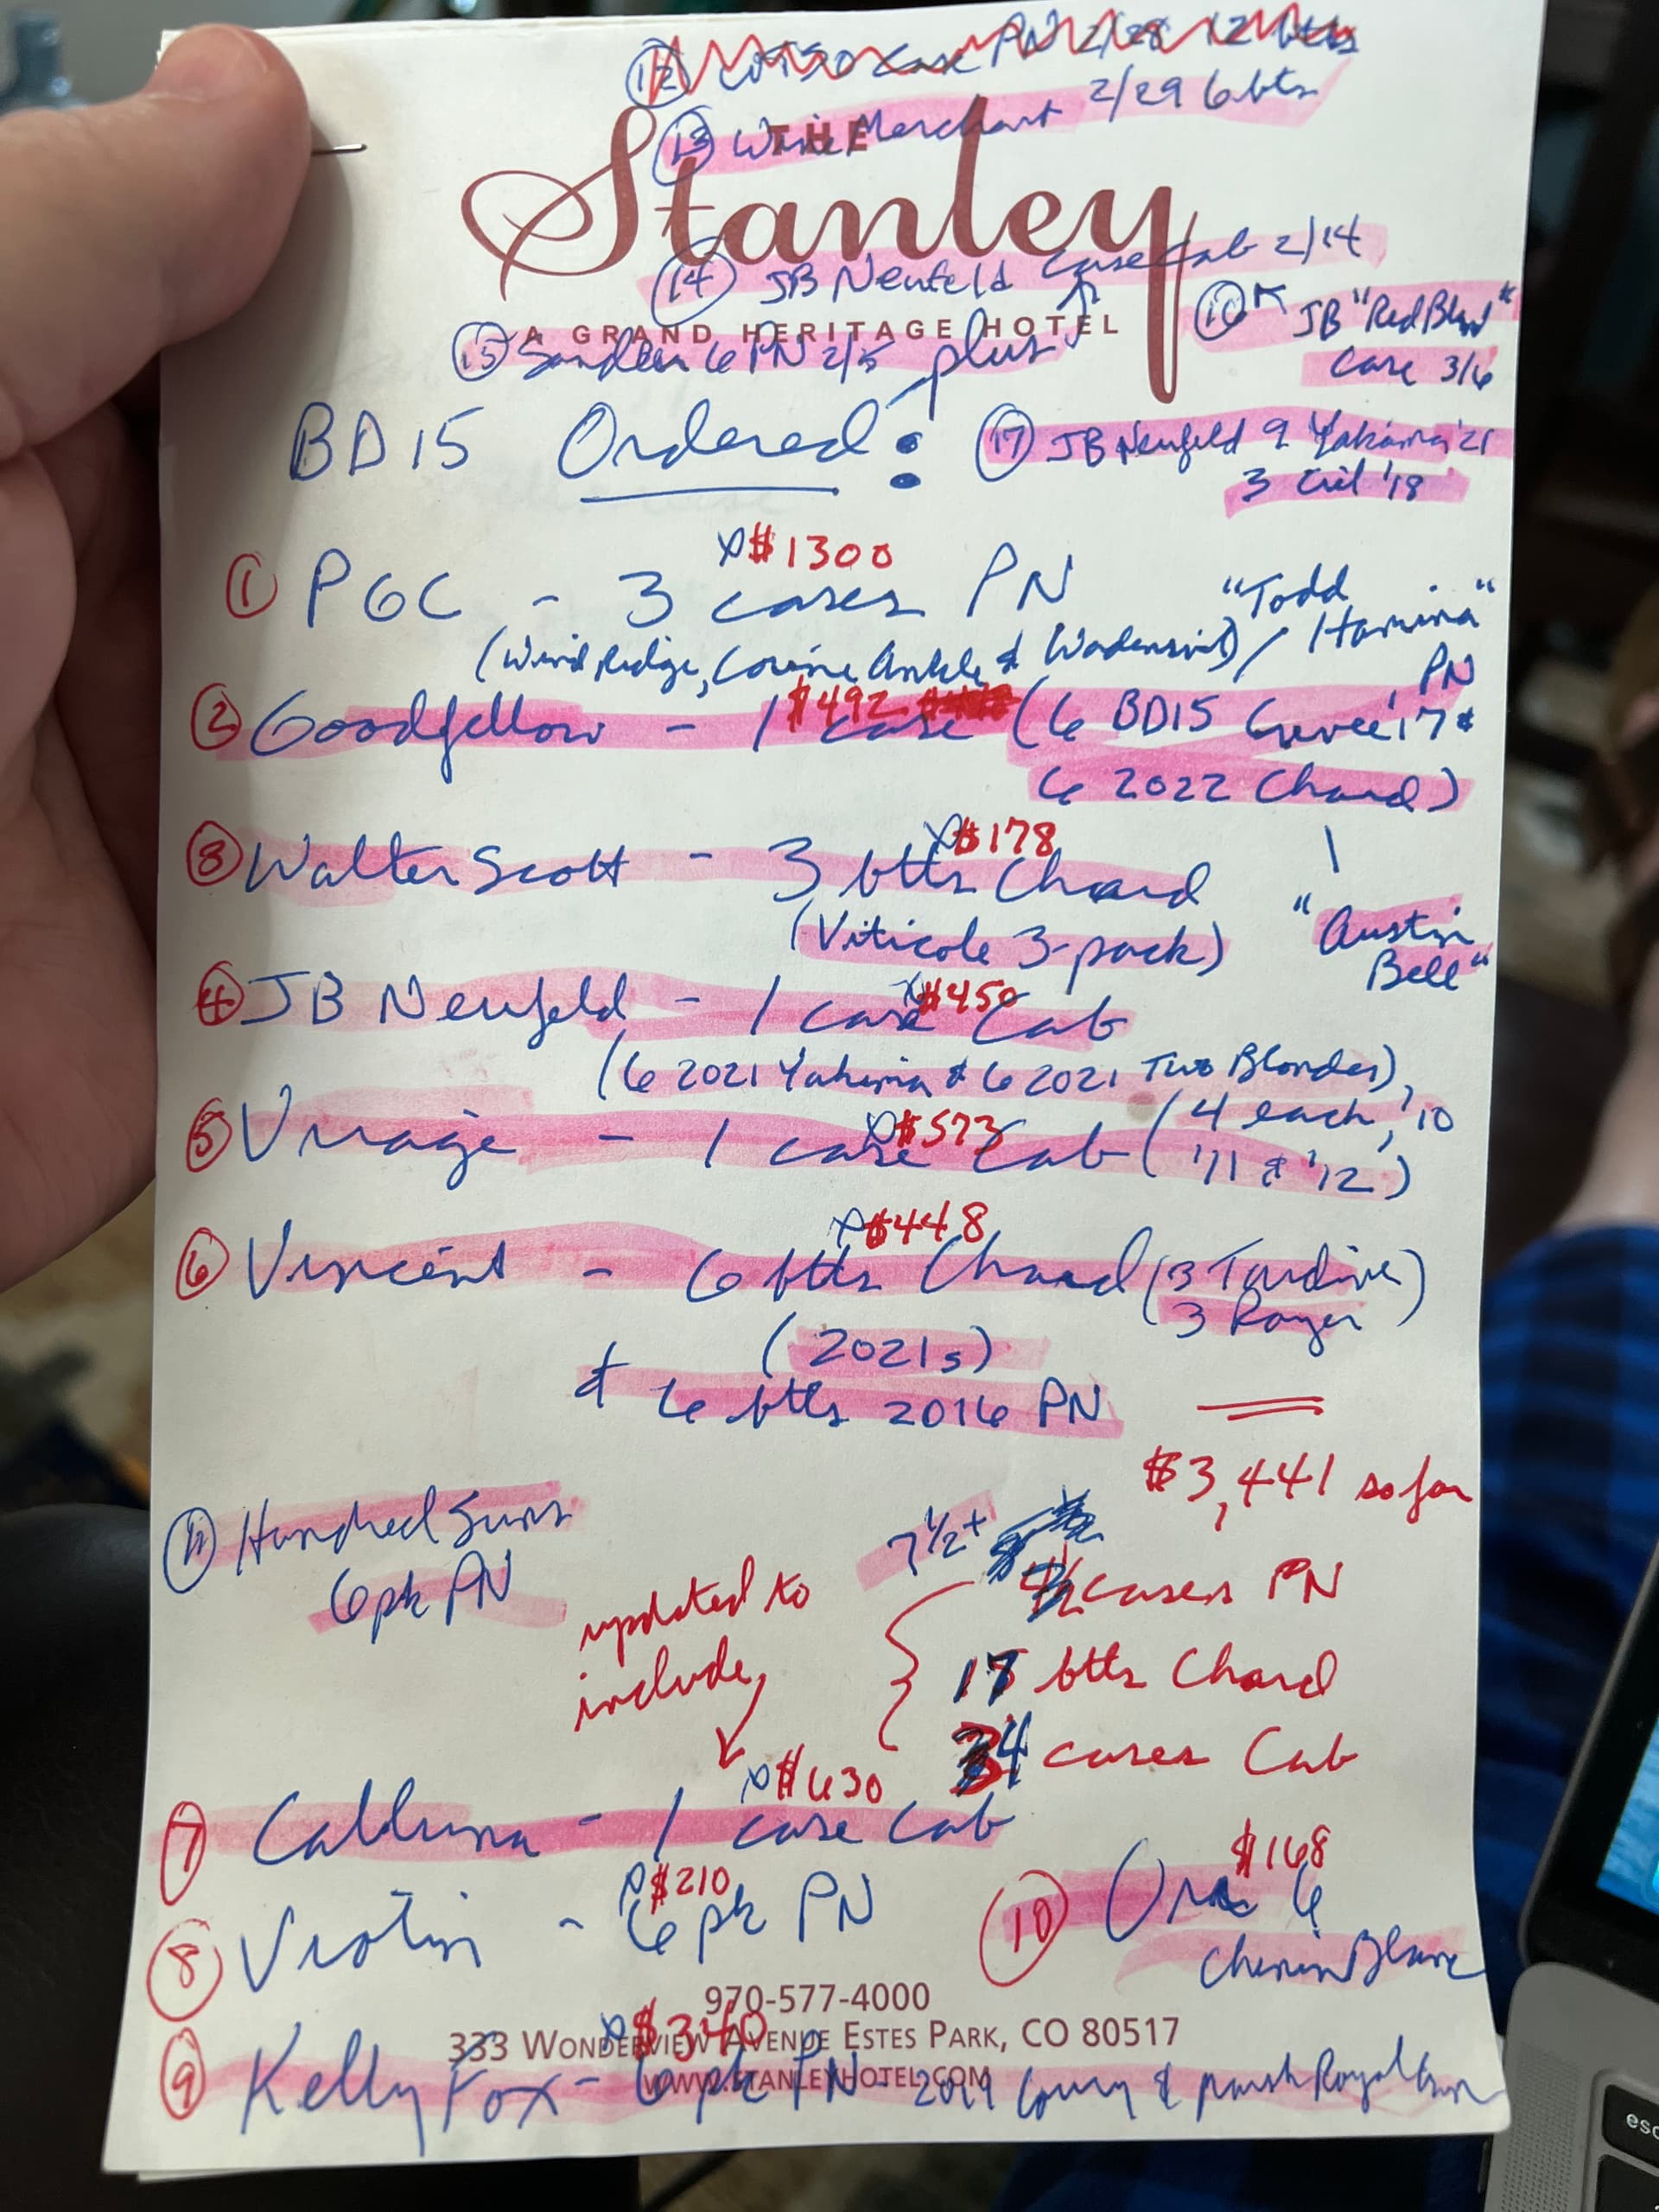 ⑫ case PN 2/28 12 btls
⑬ Wine Merchant 2/29 6 bts
THE
Stanley
⑭ JB Neufeld case Cab 2/14
A GRAND HERITAGE HOTEL
⑯ JB "Red Blend"
case 3/6
⑮ 6 PN 2/5 plus
BD15 Ordered:
⑰ JB Neufeld 9 Yakima '21
3 '18
$1300
① PGC - 3 cases PN
"Todd
Hamina"
(Wind Ridge, Corine Ankle & Wadensvil) /
PN
$492
② Goodfellow - 1 case (6 BD15 Cuvee '17 &
6 2022 Chard)
$178
③ Walter Scott - 3 btls Chard
(Viticole 3-pack)
"Austin
Bell"
$450
④ JB Neufeld - 1 case Cab
(6 2021 Yakima & 6 2021 Two Blondes)
$573
⑤ - 1 case Cab (4 each, '10
'11 & '12)
$448
⑥ Vincent - 6 btls Chard (3 Tardive)
3 Royer
(2021s)
& 6 btls 2016 PN
$3,441 so far
⑪ Hundred Suns
6pk PN
7 1/2+
cases PN
updated to
include
17 btls Chard
4 cases Cab
$630
⑦ - 1 case Cab
$210
⑧ Violin - 6pk PN
$168
⑩ 6
Chenin Blanc
970-577-4000
$340
333 WONDERVIEW AVENUE ESTES PARK, CO 80517
WWW.STANLEYHOTEL.COM
⑨ Kelly Fox - 6pk PN - 2019 Coury &
esc